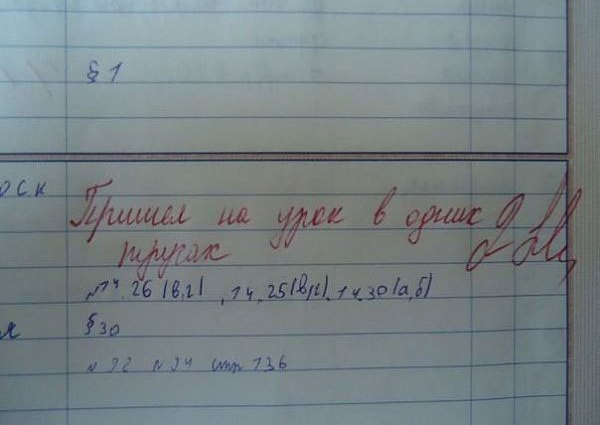 § 1
оск
Пришел на урок в одних
трусах 2
№14.26(в,г), 14.25(в,г), 14.30(а,б)
§30
№92 №94 стр 136